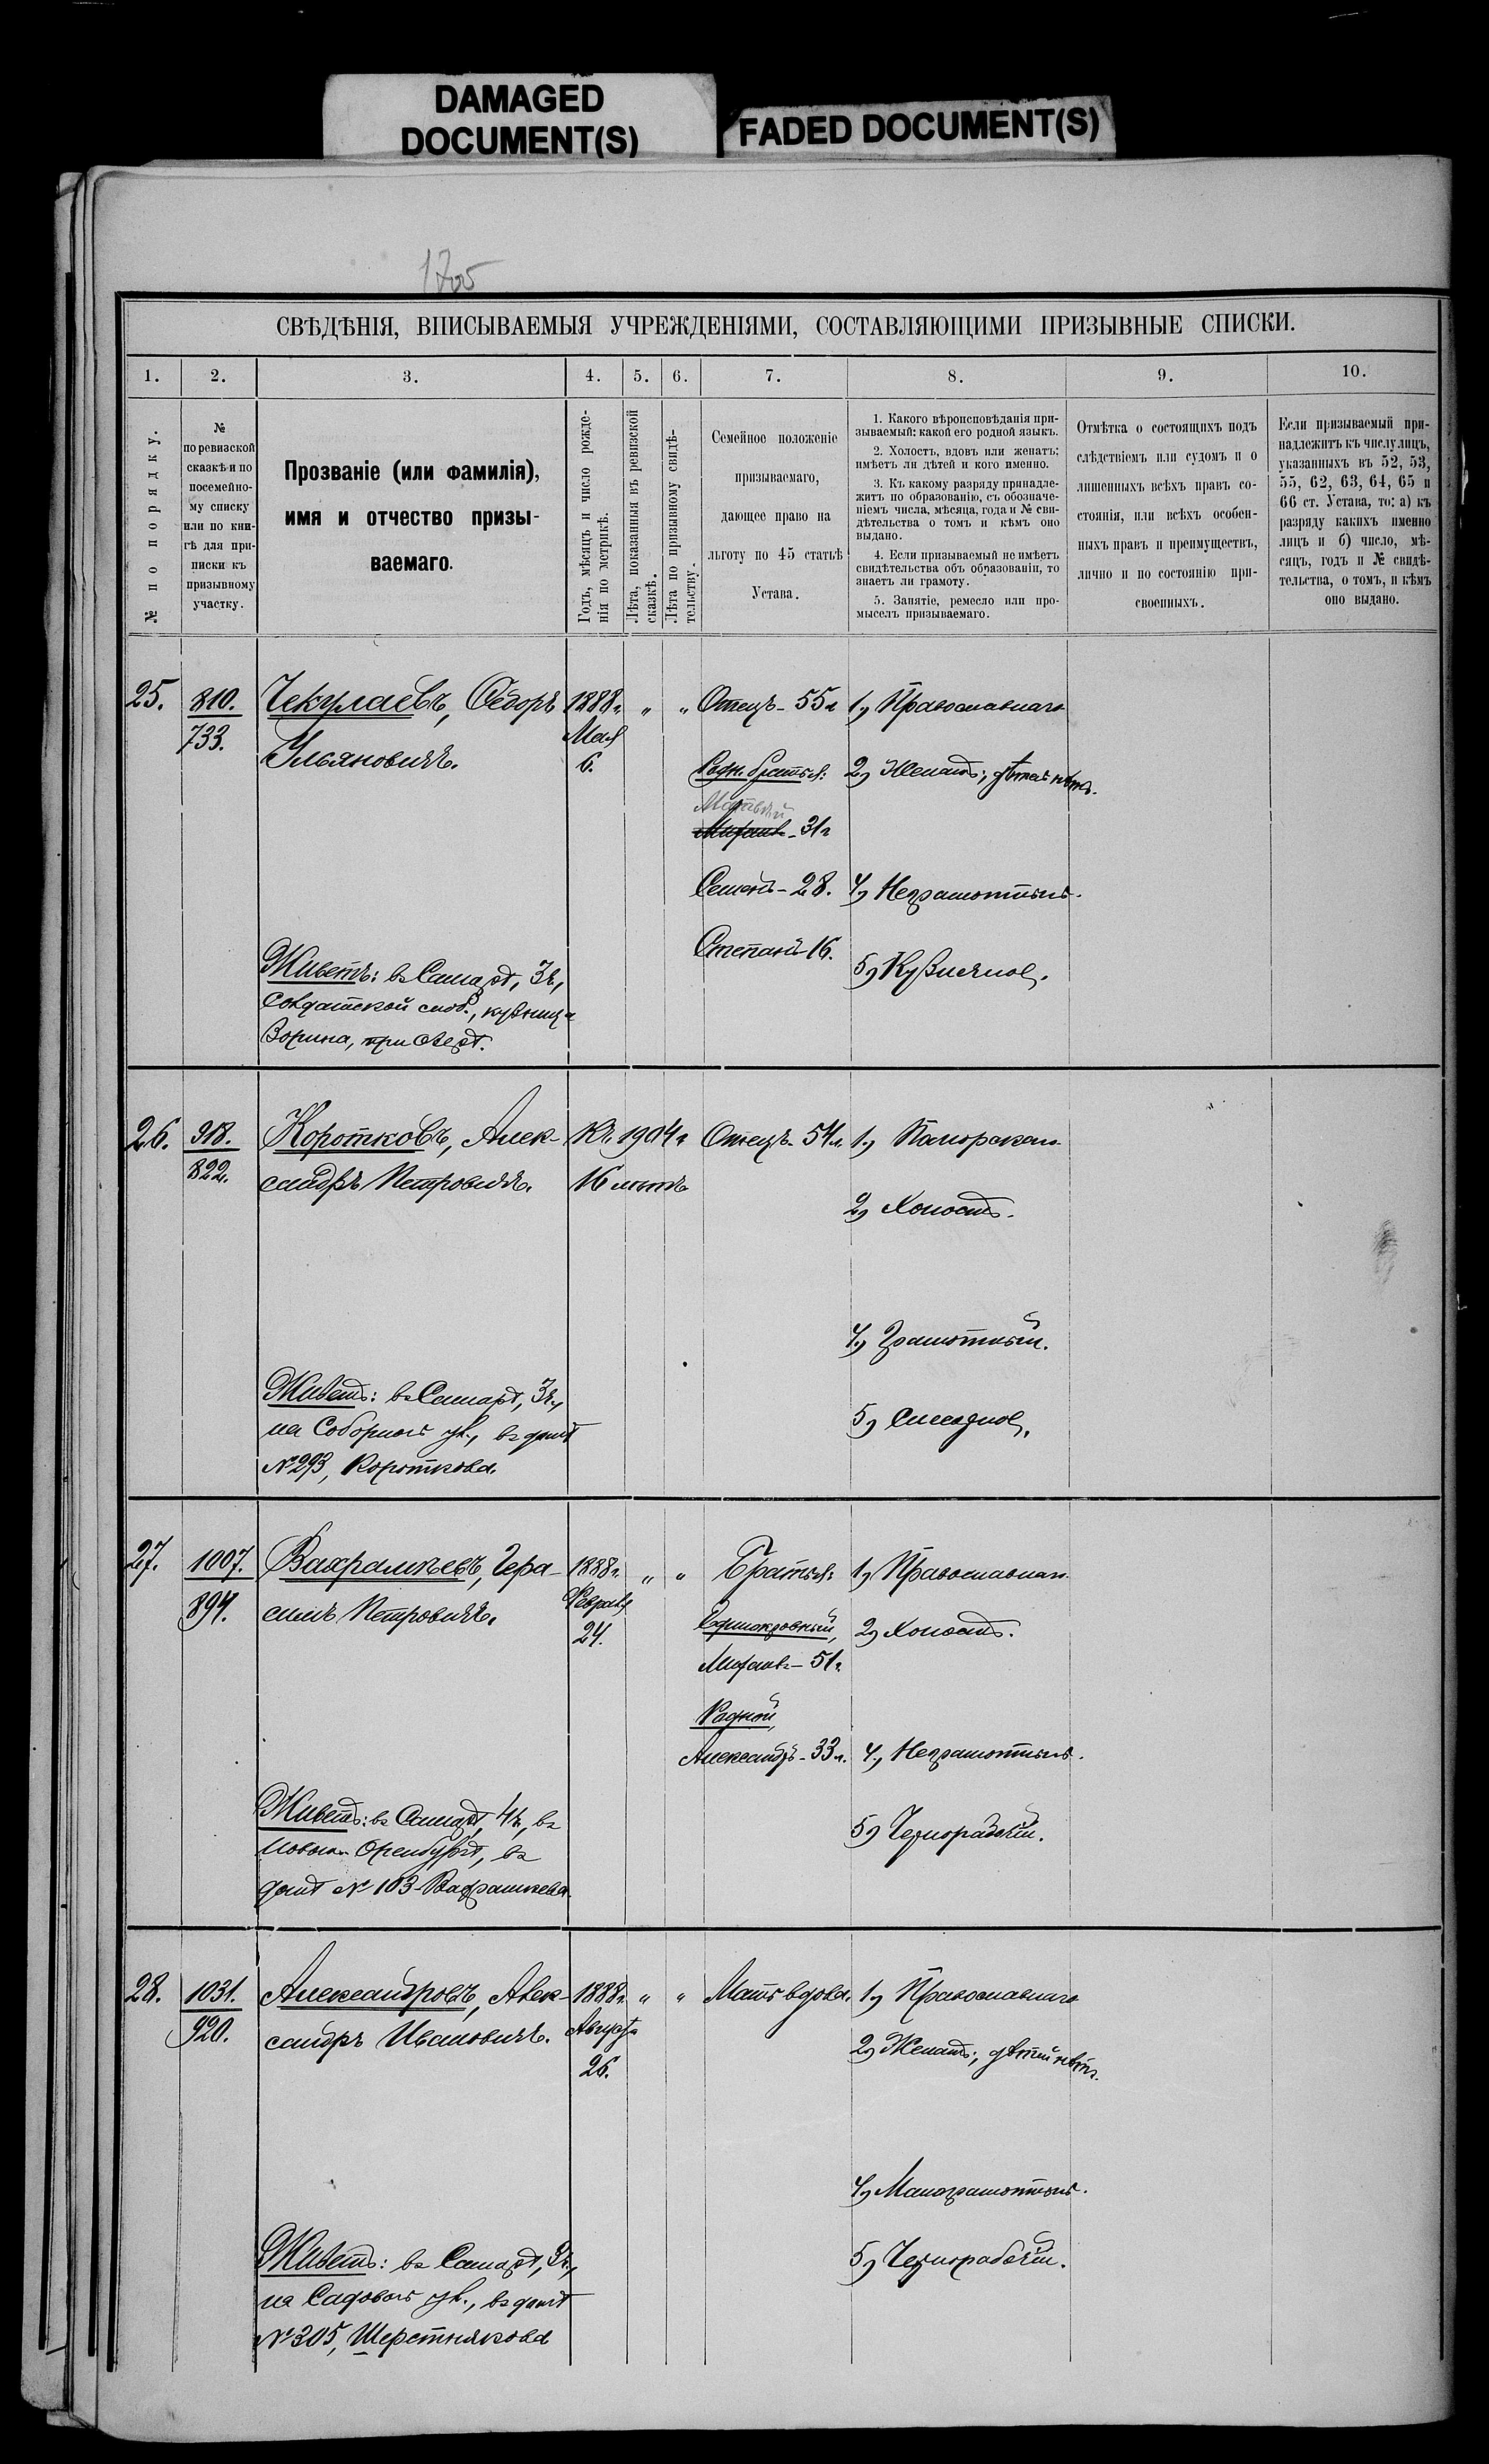 DAMAGED
DOCUMENT(S)
FADED DOCUMENT(S)
СВѢДѢНІЯ, ВПИСЫВАЕМЫЯ УЧРЕЖДЕНІЯМИ, СОСТАВЛЯЮЩИМИ ПРИЗЫВНЫЕ СПИСКИ.
1.
2.
3.
4.
5.
6.
7.
8.
9.
10.
№ по порядку.
№
по ревизской
сказкѣ и по
посемейно-
му списку
или по кни-
гѣ для при-
писки къ
призывному
участку.
Прозваніе (или фамилія),
имя и отчество призы-
ваемаго.
Годъ, мѣсяцъ и число рожде-
нія по метрикѣ.
Лѣта, показанныя въ ревизской
сказкѣ.
Лѣта по призывному свидѣ-
тельству.
Семейное положеніе
призываемаго,
дающее право на
льготу по 45 статьѣ
Устава.
1. Какого вѣроисповѣданія при-
зываемый: какой его родной языкъ.
2. Холостъ, вдовъ или женатъ:
имѣетъ ли дѣтей и кого именно.
3. Къ какому разряду принадле-
житъ по образованію, съ обозначе-
ніемъ числа, мѣсяца, года и № сви-
дѣтельства о томъ и кѣмъ оно
выдано.
4. Если призываемый не имѣетъ
свидѣтельства объ образованіи, то
знаетъ ли грамоту.
5. Занятіе, ремесло или про-
мыселъ призываемаго.
Отмѣтка о состоящихъ подъ
слѣдствіемъ или судомъ и о
лишенныхъ всѣхъ правъ со-
стоянія, или всѣхъ особен-
ныхъ правъ и преимуществъ,
лично и по состоянію при-
своенныхъ.
Если призываемый при-
надлежитъ къ числу лицъ,
указанныхъ въ 52, 53,
55, 62, 63, 64, 65 и
66 ст. Устава, то: а) къ
разряду какихъ именно
лицъ и б) число, мѣ-
сяцъ, годъ и № свидѣ-
тельства, о томъ, и кѣмъ
оно выдано.
25.
810.
733.
Чекулаевъ, Ѳедоръ
Ульяновичъ.
Живетъ: въ Самарѣ, 3 ч.,
Солдатской слоб., кузница
Зорина, при
1888 г.
Мая
6.
"
"
Отецъ - 55 л
Родн. братья:
Матвѣй
Михаилъ - 31 г
Семенъ - 28.
Степанъ - 16.
1) Православнаго
2) Женатъ; дѣтей нѣтъ.
4) Неграмотный.
5) Кузнечное.
26.
918.
822.
Коротковъ, Алек-
сандръ Петровичъ.
Живетъ: въ Самарѣ, 3 ч.,
на Соборной ул., въ домѣ
№ 293, Короткова.
Къ 1904 г
16 лѣтъ
Отецъ - 54 л.
1)
2) Холостъ.
4) Грамотный.
5) Слесарное.
27.
1007.
894.
Вахрамѣевъ, Гера-
симъ Петровичъ.
Живетъ: въ Самарѣ, 4 ч., въ
Новомъ Оренбургѣ, въ
домѣ № 103 Вахрамѣева.
1888 г.
Февраля
24.
"
"
Братья:
Единокровный,
Михаилъ - 51 г.
Родной,
Александръ - 33 л.
1) Православнаго
2) Холостъ.
4) Неграмотный.
5) Чернорабочій.
28.
1031.
920.
Александровъ, Алек-
сандръ Ивановичъ.
Живетъ: въ Самарѣ, 3 ч.,
на Садовой ул., въ домѣ
№ 305, Шерстнякова
1888 г.
Августа
26.
"
"
Мать вдова.
1) Православнаго
2) Женатъ; дѣтей нѣтъ.
4) Малограмотный.
5) Чернорабочій.